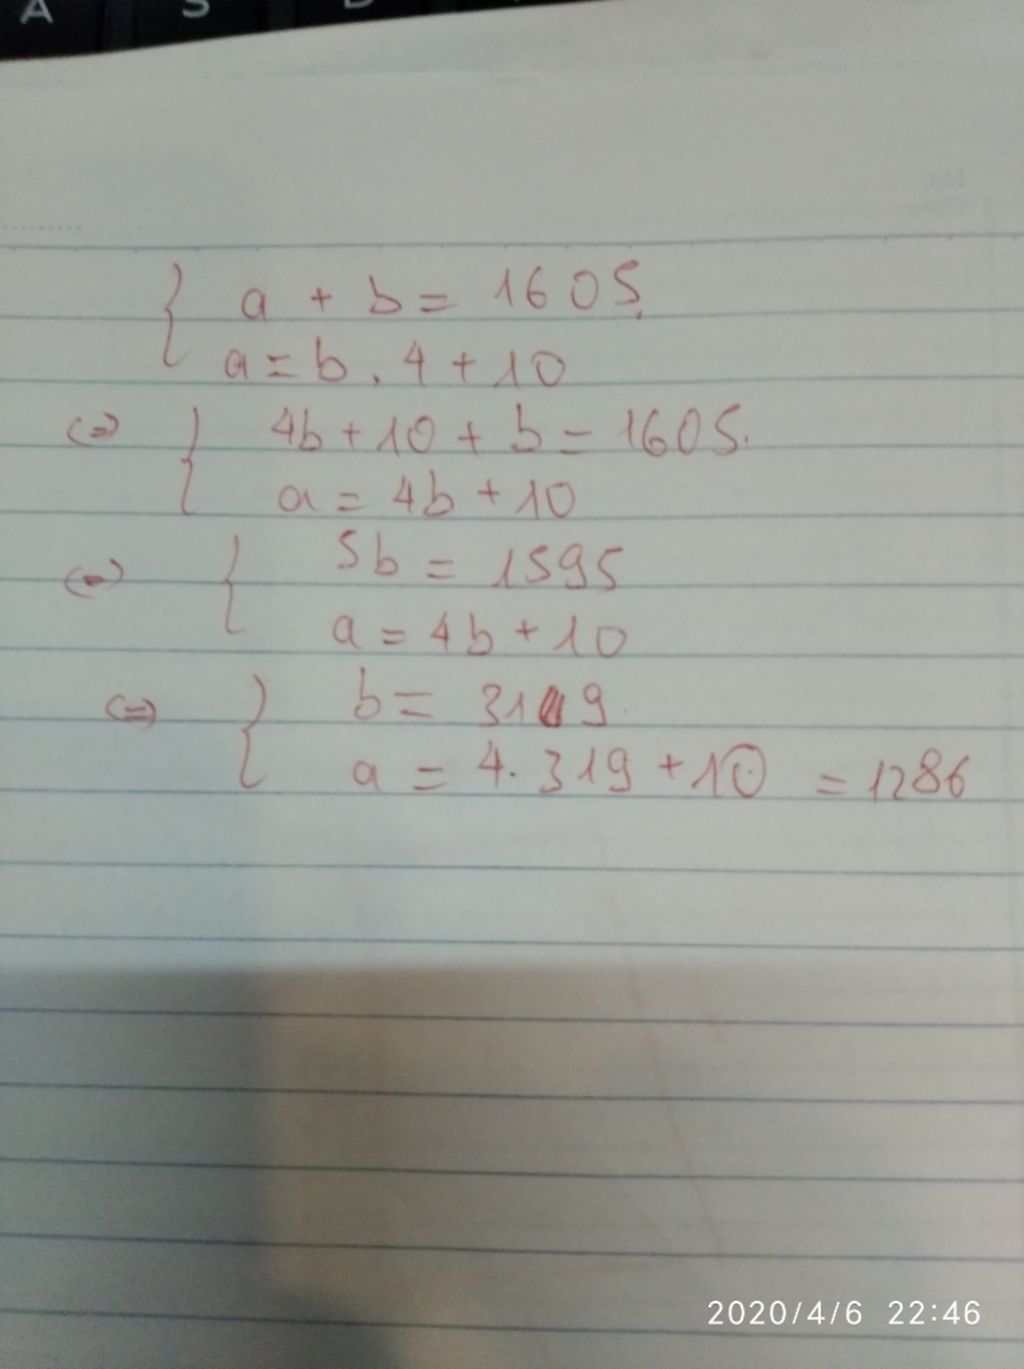 A S D
{ a + b = 1605.
a = b . 4 + 10
<=> { 4b + 10 + b = 1605.
a = 4b + 10
<=> { 5b = 1595
a = 4b + 10
<=> { b = 319
a = 4. 319 + 10 = 1286
2020/4/6 22:46